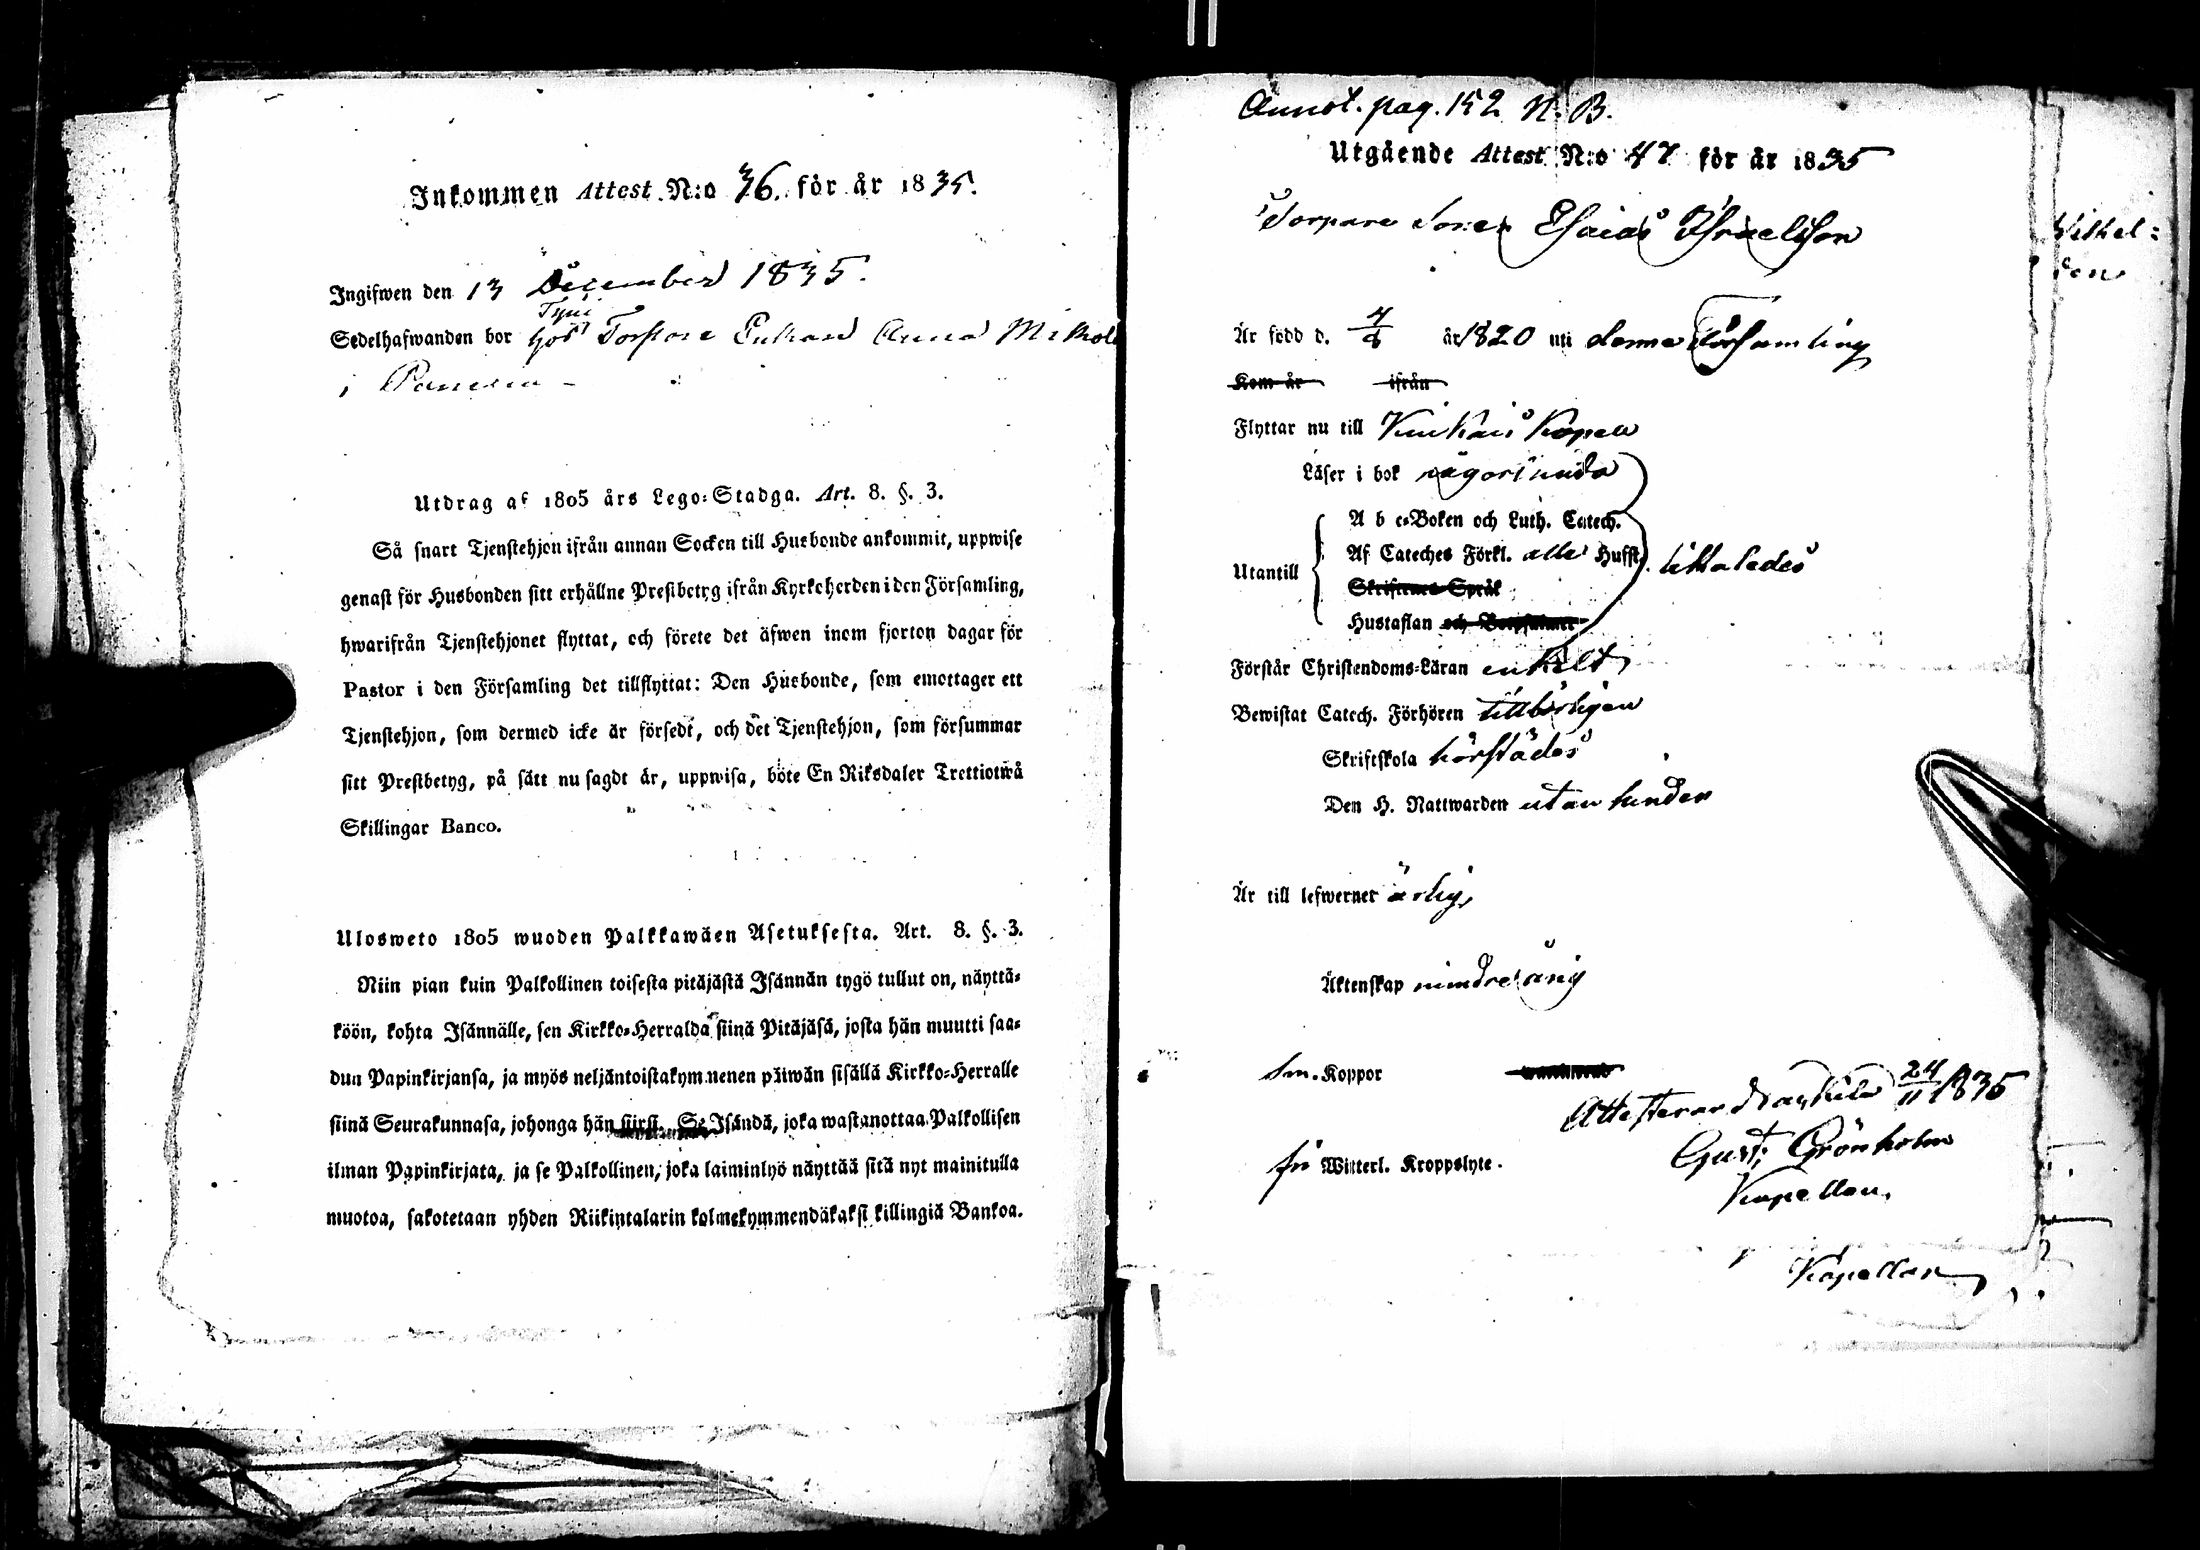 Inkommen Attest N:o 36. för år 1835.
Ingifwen den 13 December 1835.
Sedelhafwanden bor hos Torpare Enkan Anna
i
Utdrag af 1805 års Lego-Stadga. Art. 8. §. 3.
Så snart Tjenstehjon ifrån annan Socken till Husbonde ankommit, uppwise
genast för Husbonden sitt erhållne Prestbetyg ifrån Kyrkoherden i den Församling,
hwarifrån Tjenstehjonet flyttat, och förete det äfwen inom fjorton dagar för
Pastor i den Församling det tillflyttat: Den Husbonde, som emottager ett
Tjenstehjon, som dermed icke är försedt, och det Tjenstehjon, som försummar
sitt Prestbetyg, på sätt nu sagdt är, uppwisa, böte En Riksdaler Trettiotwå
Skillingar Banco.
Ulosweto 1805 wuoden Palkkawäen Asetuksesta. Art. 8. §. 3.
Niin pian kuin Palkollinen toisesta pitäjästä Isännän tygö tullut on, näyttä-
köön, kohta Isännälle, sen Kirkko-Herralda siinä Pitäjäsä, josta hän muutti saa-
dun Papinkirjansa, ja myös neljäntoistakymmenen päiwän sisällä Kirkko-Herralle
siinä Seurakunnasa, johonga hän siirsi. Se Isändä, joka wastanottaa Palkollisen
ilman Papinkirjata, ja se Palkollinen, joka laiminlyö näyttää sitä nyt mainitulla
muotoa, sakotetaan yhden Riikintalarin kolmekymmendäkaksi killingiä Bankoa.
Annot. pag. 152 N. B.
Utgående Attest N:o 47 för år 1835
Torpare Sonen Esaias Israelsson
Är född d. år 1820 uti denna Församling
Kom år ifrån
Flyttar nu till Kapell
Läser i bok någorlunda
A b c-Boken och Luth. Catech.
Af Cateches Förkl. alla Hufst. likaledes
Utantill
Skriftenes Språk
Hustaflan och
Förstår Christendoms-Läran enkelt
Bewistat Catech. Förhören tillbörligen
Skriftskola härstädes
Den H. Nattwarden utan hinder
Är till lefwernet ärlig,
Äktenskap minderårig
Koppor
Attesterar 24/11 1835
fri Witterl. Kroppslyte.
Gust. Grönholm
Kapellan.
Kapellan